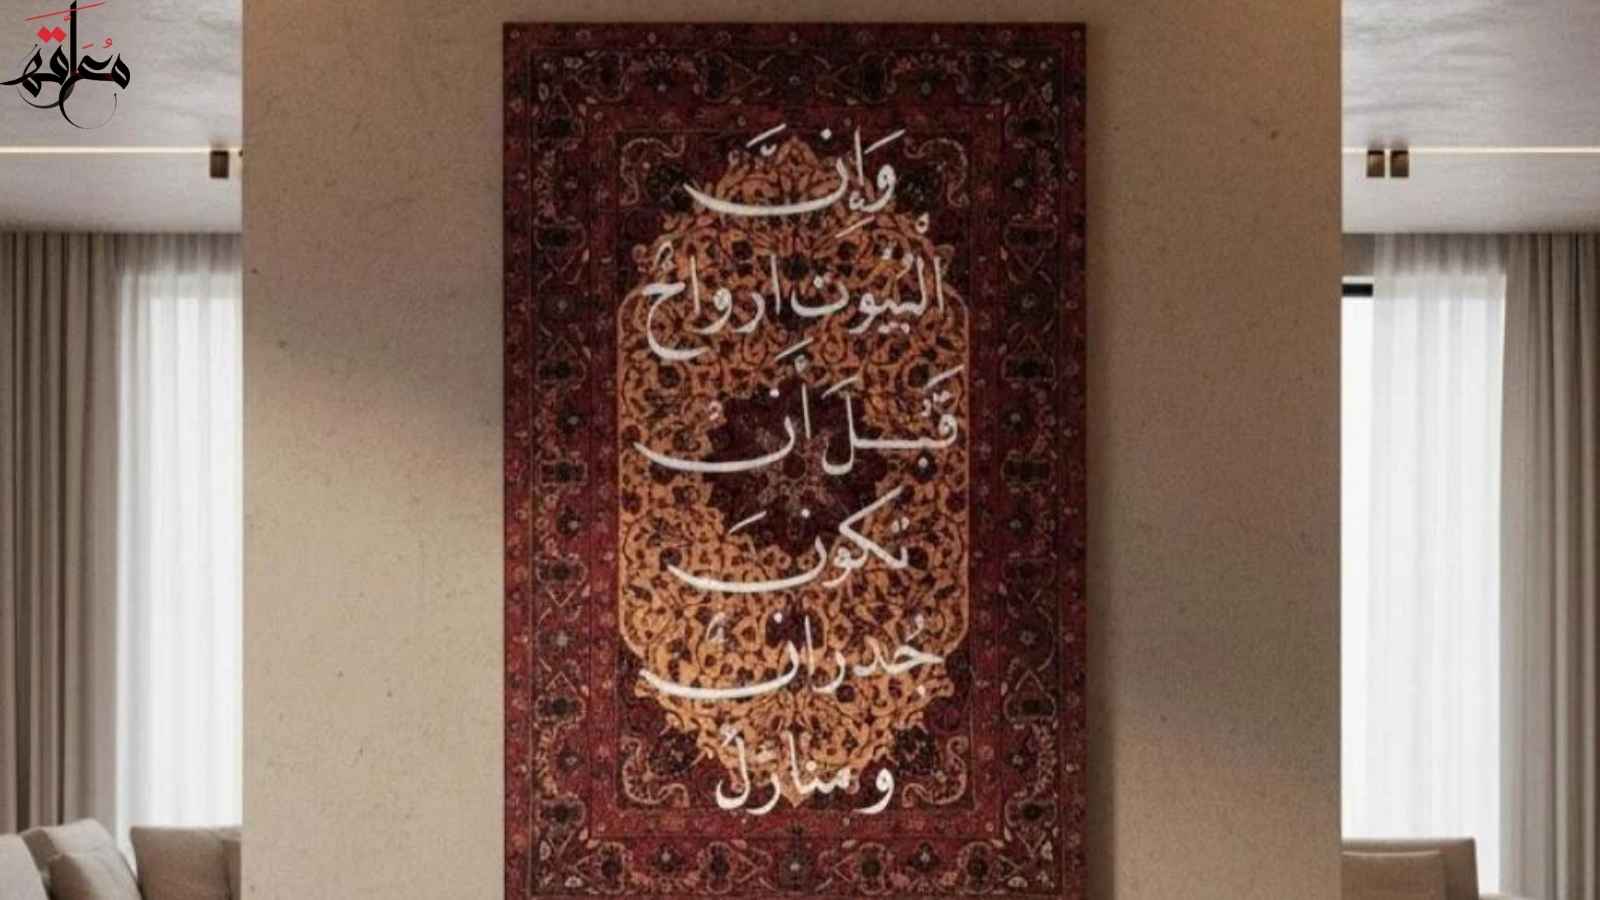 معلقة
وَإِنَّ
الْبُيُوتَ أرواحٌ
قَبْلَ أَنْ
تَكونَ
جُدرانٌ
و منازلُ